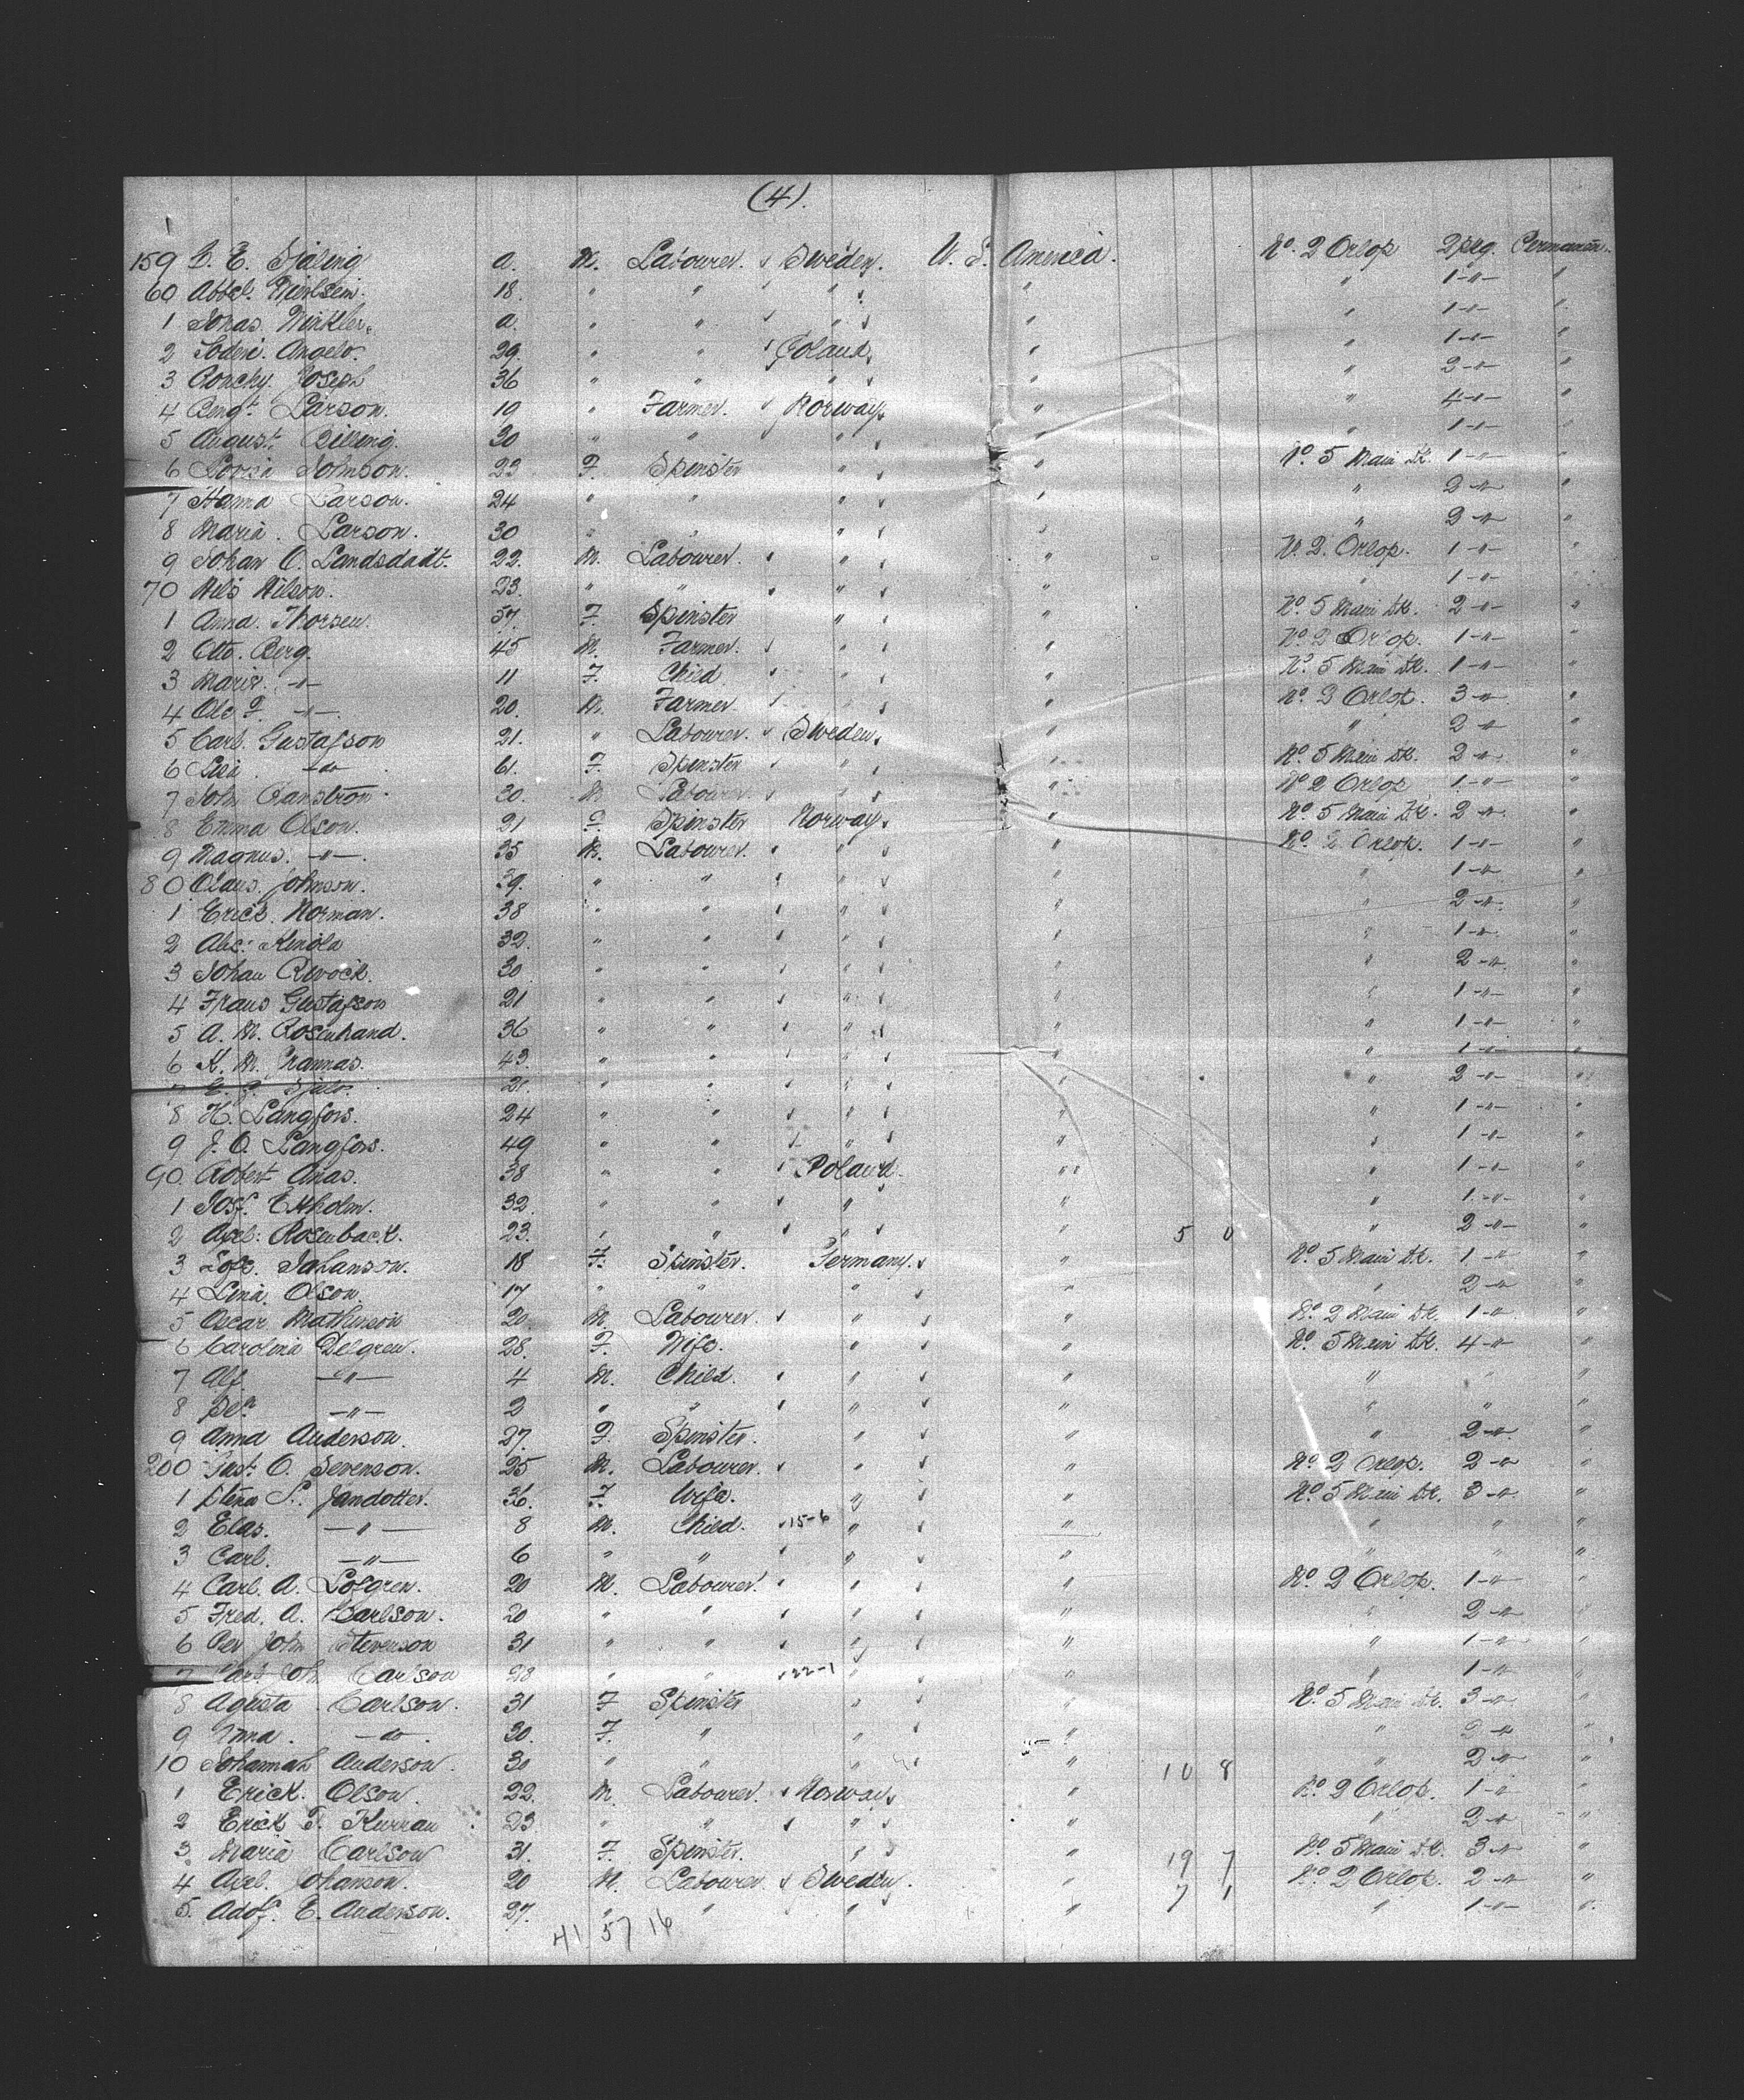 (4).
159 E. Sjöling a. M. Labourer. Sweden. U. S. America. No. 2 Orlop 2 pkg.
60 18. " " " " " 1 -"- "
1 Jonas Winkler. a. " " " " " 1 -"- "
2 Angelo. 29. " " Poland, " " 1 -"- "
3 Joseph 36 " " " " " 2 -"- "
4 Bengt. Larson. 19 " Farmer. Norway. " " 4 -"- "
5 August. Billing. 20 " " " " " 1 -"- "
6 Johnson. 23 F. Spinster " " No. 5 Main Dk. 1 -"- "
7 Hanna Larson. 24 " " " " " 2 -"- "
8 Maria. Larson. 30 " " " " " 2 -"- "
9 Johan O. Landsdadt. 22. M. Labourer. " " No. 2. Orlop. 1 -"- "
70 Nils Nilson. 23. " " " " " 1 -"- "
1 Anna. Thorsen. 57. F. Spinster " " No. 5 Main Dk. 2 -"- "
2 Otto. Berg. 45 M. Farmer. " " No. 2 Orlop. 1 -"- "
3 Marie. -"- 11 F. Child " " No. 5 Main Dk. 1 -"- "
4 -"- 20. M. Farmer. " " No. 2 Orlop. 3 -"- "
5 Carl. Gustafson 21. " Labourer. Sweden. " " 2 -"- "
6 -do- 61. F. Spinster " " No. 5 Main Dk. 2 -"- "
7 John Ranström. 30. M Labourer. " " No 2 Orlop 1 -"- "
8 Emma Olson. 21 F. Spinster Norway. " No. 5 Main Dk. 2 -"- "
9 Magnus. -"- 35 M. Labourer. " " No. 2 Orlop. 1 -"- "
80 Claus. Johnson. 39. " " " " " 1 -"- "
1 Erick. Norman. 38 " " " " " 2 -"- "
2 Kinola 32. " " " " " 1 -"- "
3 Johan 30 " " " " " 2 -"- "
4 Frans Gustafson 21 " " " " " 1 -"- "
5 A. M. Rosenbrand. 36 " " " " " 1 -"- "
6 K. M. 43. " " " " " 1 -"- "
7 21. " " " " " 2 -"- "
8 H. Langfors. 24 " " " " " 1 -"- "
9 J. O. Langfors. 49 " " " " " 1 -"- "
90. Robert Anas. 38 " " Poland. " " 1 -"- "
1 Josf. Ekholm. 32. " " " " " 1 -"- "
2 Axel. Rosenback. 23. " " " " 5 0 " 2 -"- "
3 Johanson. 18 F. Spinster. Germany. " No. 5 Main Dk. 1 -"- "
4 Lina Olson. 17 " " " " " 2 -"- "
5 Oscar Mathuson 20. M. Labourer. " " No. 2 Main Dk. 1 -"- "
6 Carolina Delgren. 28. F. Wife. " " No. 5 Main Dk. 4 -"- "
7 Alf. -"- 4 M. Child. " " " " "
8 -"- 2 " " " " " " "
9 Anna Anderson. 27. F. Spinster. " " " 2 -"- "
200 Gust. O. Sevenson. 25 M. Labourer. " " No. 2 Orlop. 2 -"- "
1 Stena S. Jandotter. 36. F. Wife. " " No. 5 Main Dk. 3 -"- "
2 Elas. -"- 8 M. Child. 15-6 " " " " "
3 Carl. -"- 6 " " " " " " "
4 Carl. A. Lofgren. 20 M. Labourer. " " No. 2 Orlop. 1 -"- "
5 Fred. A. Carlson. 20 " " " " " 2 -"- "
6 John Stevenson 31 " " " " " 1 -"- "
7 Carl Joh. Carlson 28 " " 22-1 " " " 1 -"- "
8 Agusta. Carlson. 31 F Spinster " " No. 5 Main Dk. 3 -"- "
9 Anna. -do- 30. F. " " " " 2 -"- "
10 Johannah Anderson. 30 " " " " 10 8 " 2 -"- "
1 Erick. Olson. 22. M. Labourer. Norway. " No. 2 Orlop. 1 -"- "
2 Erick F. Kurran 23. " " " " " 2 -"- "
3 Maria Carlson 31. F. Spinster. " " 19 7 No. 5 Main Dk. 3 -"- "
4 Axel. Johanson. 20 M. Labourer. Sweden. " 7 1 No. 2 Orlop. 2 -"- "
5. Adof. E. Anderson. 27. " " " " " 1 -"- "
41 57 16